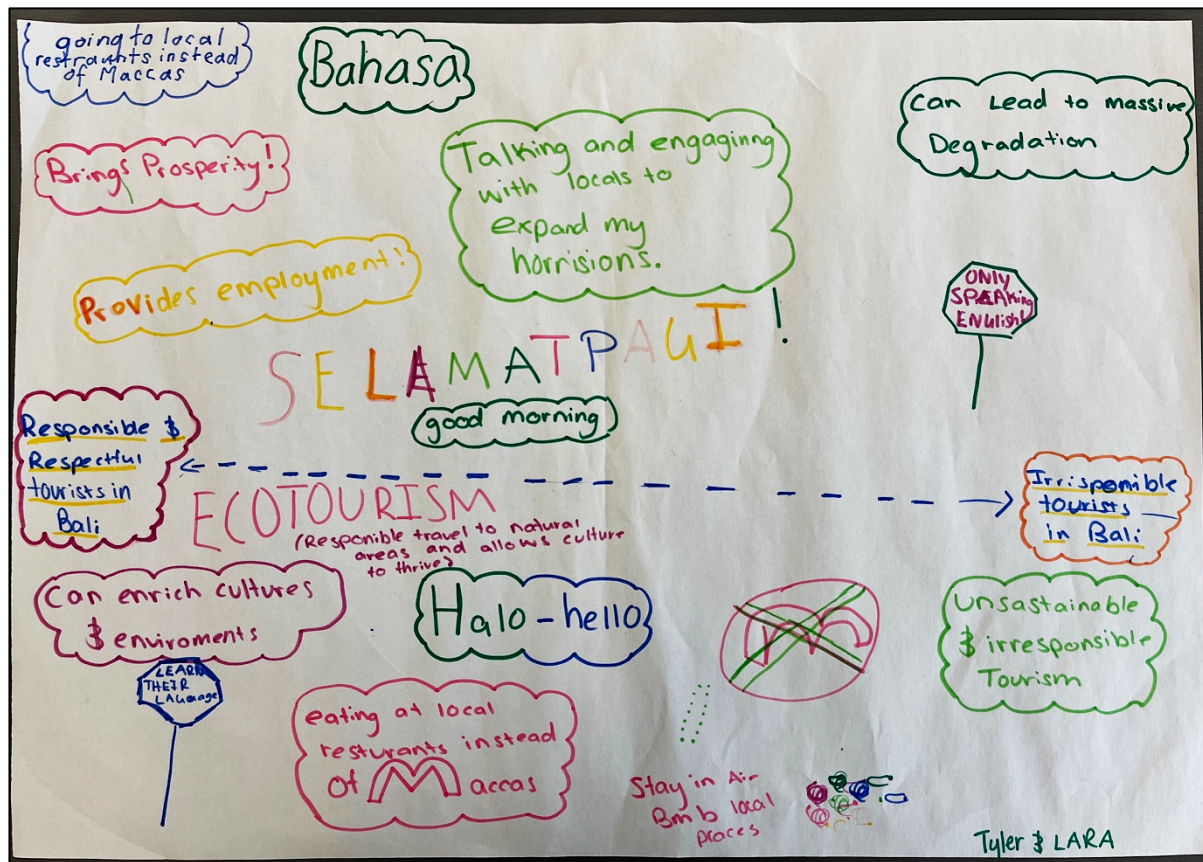 going to local
restraunts instead
of Maccas
Bahasa
Can Lead to massive
Degradation
Brings Prosperity!
Talking and engaginng
with locals to
expand my
horrisions.
Provides employment!
ONLY
SPEAking
ENGlish!
SELAMAT PAGI!
good morning
Responsible $
Respectful
tourists in
Bali
Irrisponible
tourists
in Bali
ECOTOURISM
(Responible travel to natural
areas and allows culture
to thrive)
Can enrich cultures
$ enviroments
Halo - hello
Unsastainable
$ irresponsible
Tourism
LEARN
THEIR
LAuguage
eating at local
resturants instead
of Maccas
Stay in Air
Bmb local
places
Tyler $ LARA